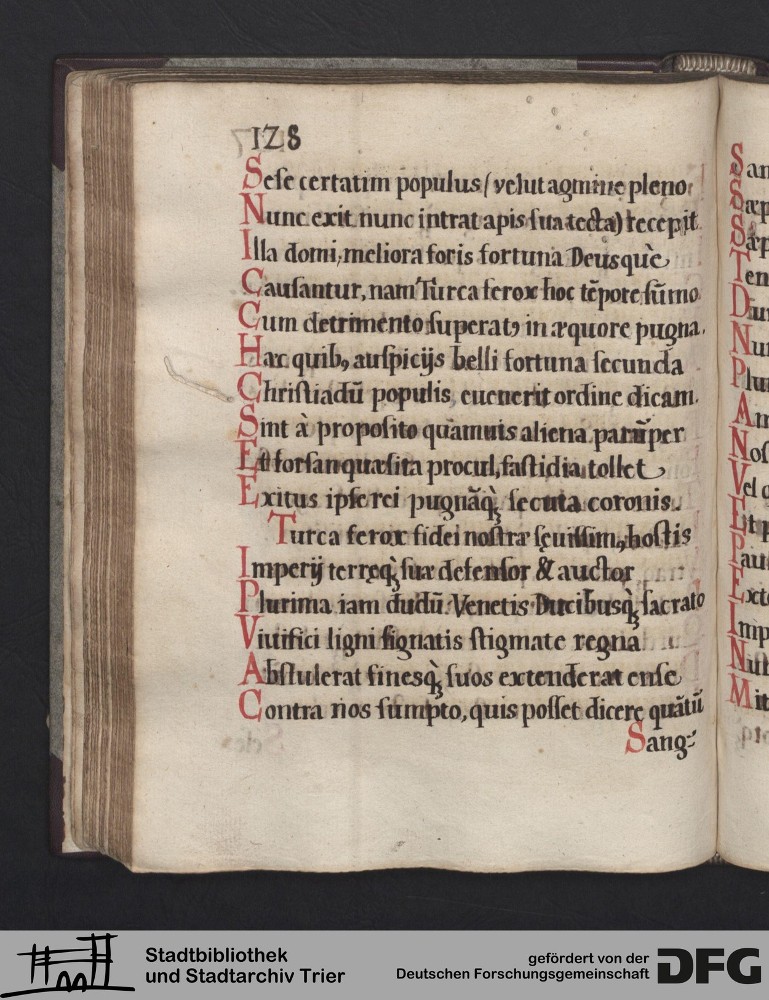 128
Sese certatim populus (velut agmine pleno
Nunc exit nunc intrat apis sua tecta) recepit
Illa domi, meliora foris fortuna Deusquè
Causantur, nam Turca ferox hoc tẽpore sũmo
Cum detrimento superatꝰ in æquore pugna.
Hac quibꝰ auspicijs belli fortuna secunda
Christiadũ populis euenerit ordine dicam.
Sint à proposito quamuis aliena parũper
Et forsan quæsita procul, fastidia tollet
Exitus ipse rei pugnãq̀ꝫ secuta coronis.
Turca ferox fidei nostræ sęuissimꝰ hostis
Imperij terręq̀ꝫ suæ defensor & auctor
Plurima iam dudũ Venetis Ducibusq̀ꝫ sacrato
Viuifici ligni signatis stigmate regna
Abstulerat finesq̀ꝫ suos extenderat ense
Contra nos sumpto, quis posset dicere quãtũ
Sang:
San
Sæp
Sæp
Ten
Dur
Nun
Plu
Am
Nos
Vel
Et p
Pau
Exte
Imp
Null
Mit
Stadtbibliothek
und Stadtarchiv Trier
gefördert von der
Deutschen Forschungsgemeinschaft
DFG